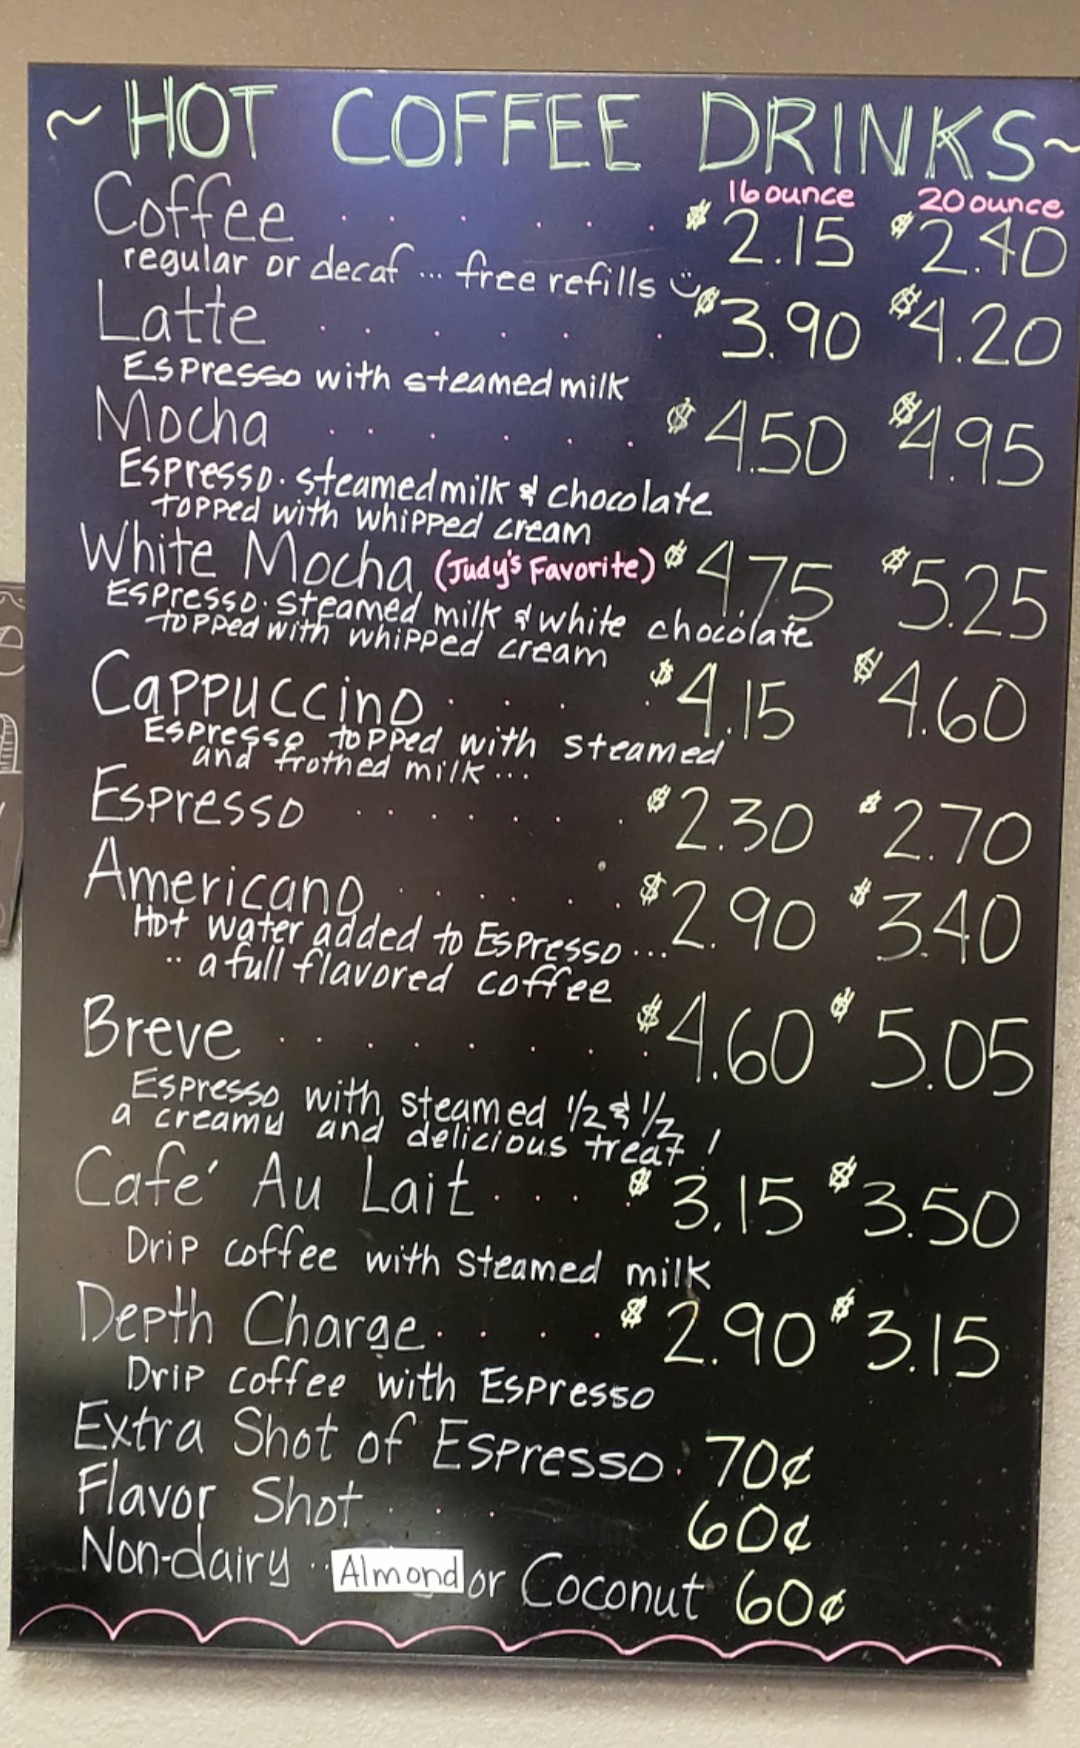 ~ HOT COFFEE DRINKS ~
16 ounce 20 ounce
Coffee . . . . . . $2.15 $2.40
regular or decaf ... free refills
Latte . . . . . . $3.90 $4.20
Espresso with steamed milk
Mocha . . . . . $4.50 $4.95
Espresso. steamed milk & chocolate
topped with whipped cream
White Mocha (Judy's Favorite) $4.75 $5.25
Espresso. steamed milk & white chocolate
topped with whipped cream
Cappuccino . . . . $4.15 $4.60
Espresso topped with steamed
and frothed milk ...
Espresso . . . . . . $2.30 $2.70
Americano . . . . . $2.90 $3.40
Hot water added to Espresso ...
.. a full flavored coffee
Breve . . . . . . . . $4.60 $5.05
Espresso with steamed 1/2 & 1/2
a creamy and delicious treat!
Café Au Lait . . . . $3.15 $3.50
Drip coffee with steamed milk
Depth Charge . . . . . $2.90 $3.15
Drip coffee with Espresso
Extra Shot of Espresso . 70¢
Flavor Shot . . . . 60¢
Non-dairy .. Almond or Coconut 60¢